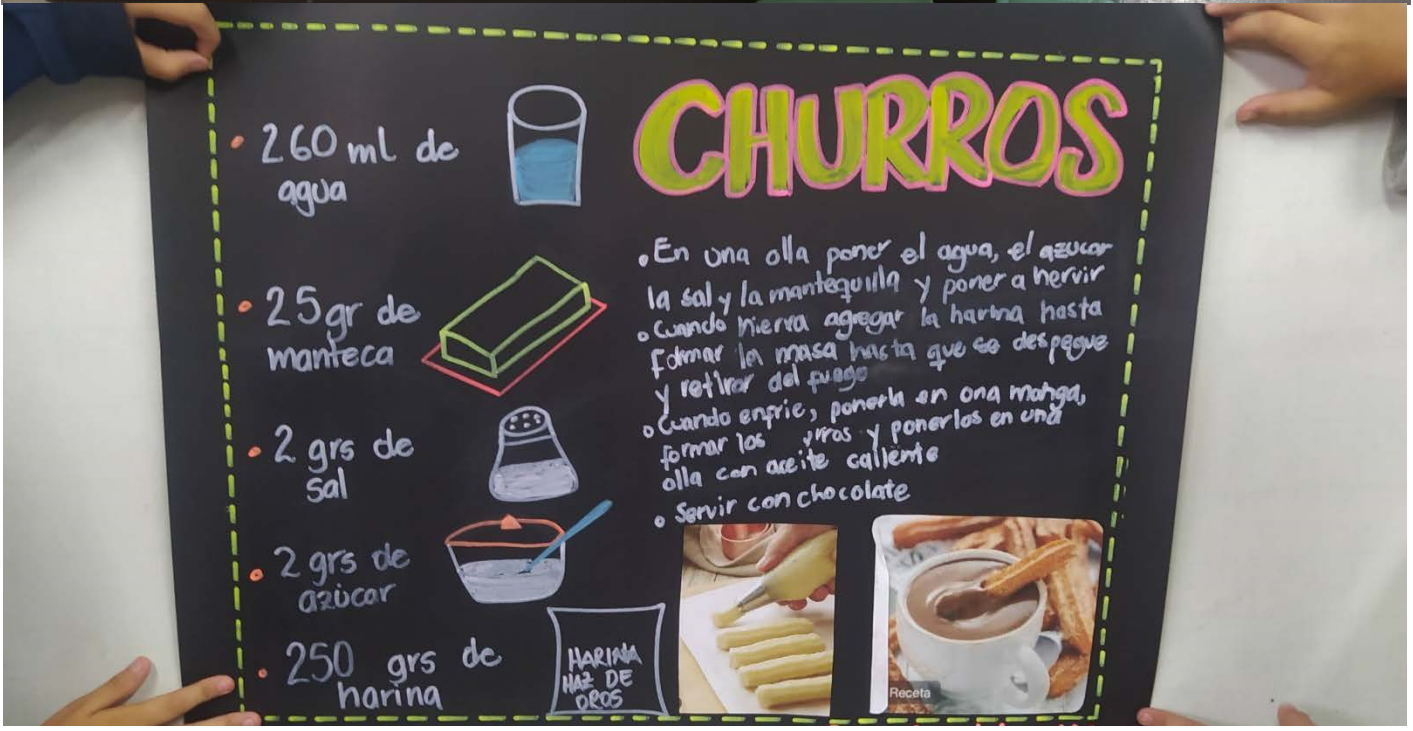 CHURROS
• 260 ml de
agua
• 25gr de
manteca
• 2 grs de
sal
• 2 grs de
azúcar
• 250 grs de
harina
HARINA
HAZ DE
OROS
• En una olla poner el agua, el azucar
la sal y la mantequilla y poner a hervir
• Cuando hierva agregar la harina hasta
formar la masa hasta que se despegue
y retirar del fuego
• Cuando enfrie, ponerla en una manga,
formar los rros y ponerlos en una
olla con aceite caliente
• Servir con chocolate
Receta